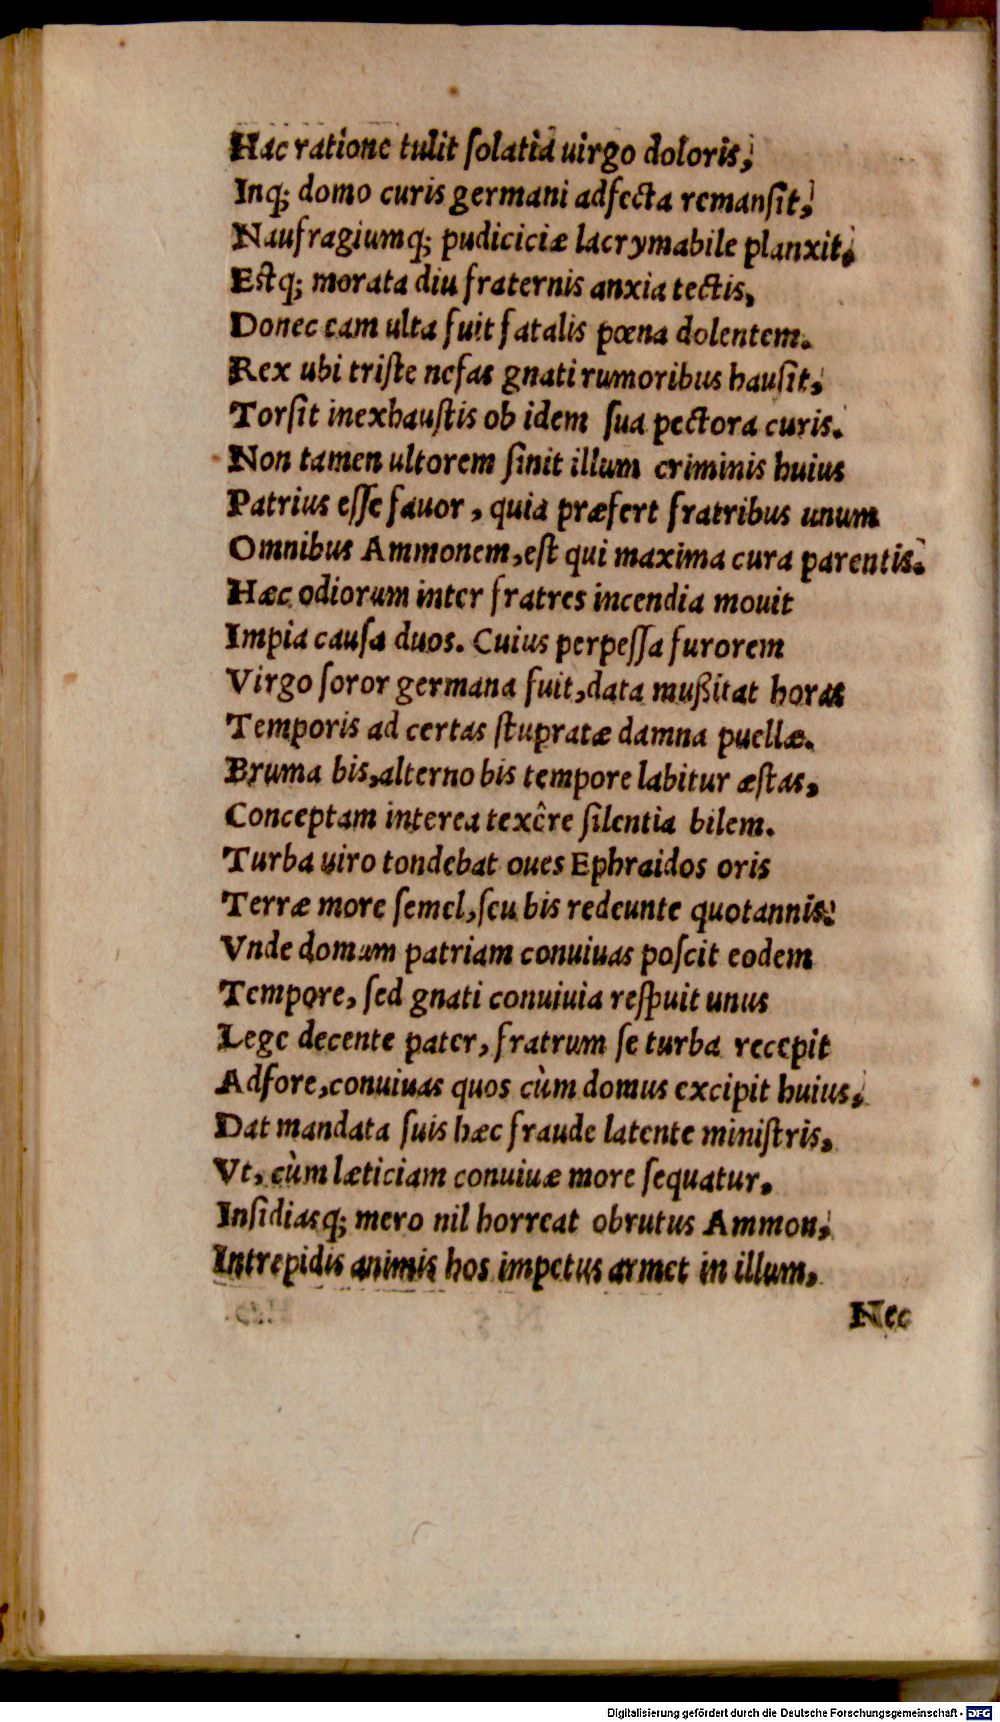 Hac ratione tulit ſolatia uirgo doloris,
Inq; domo curis germani adfecta remanſit,
Naufragiumq; pudiciciæ lacrymabile planxit,
Eſtq; morata diu fraternis anxia tectis,
Donec eam ulta fuit fatalis pœna dolentem.
Rex ubi triſte nefas gnati rumoribus hauſit,
Torſit inexhauſtis ob idem ſua pectora curis.
Non tamen ultorem ſinit illum criminis huius
Patrius eſſe fauor, quia præfert fratribus unum
Omnibus Ammonem, eſt qui maxima cura parentis.
Hæc odiorum inter fratres incendia mouit
Impia cauſa duos. Cuius perpeſſa furorem
Virgo ſoror germana fuit, data mußitat horas
Temporis ad certas ſtupratæ damna puellæ.
Bruma bis, alterno bis tempore labitur æſtas,
Conceptam interea texêre ſilentia bilem.
Turba uiro tondebat oues Ephraidos oris
Terræ more ſemel, ſeu bis redeunte quotannis:
Vnde domum patriam conuiuas poſcit eodem
Tempore, ſed gnati conuiuia reſpuit unus
Lege decente pater, fratrum ſe turba recepit
Adfore, conuiuas quos cùm domus excipit huius,
Dat mandata ſuis hæc fraude latente miniſtris,
Vt, cùm læticiam conuiuæ more ſequatur,
Inſidiasq; mero nil horreat obrutus Ammon,
Intrepidis animis hos impetus armet in illum,
Nec
Digitalisierung gefördert durch die Deutsche Forschungsgemeinschaft - DFG